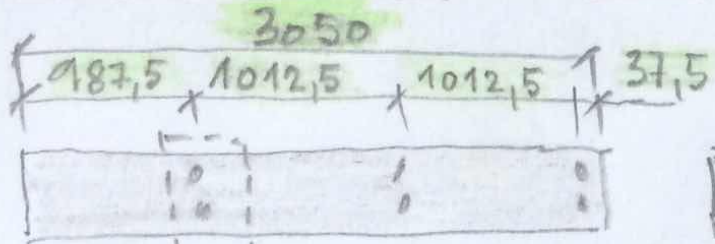 3050
987,5 1012,5 1012,5 37,5